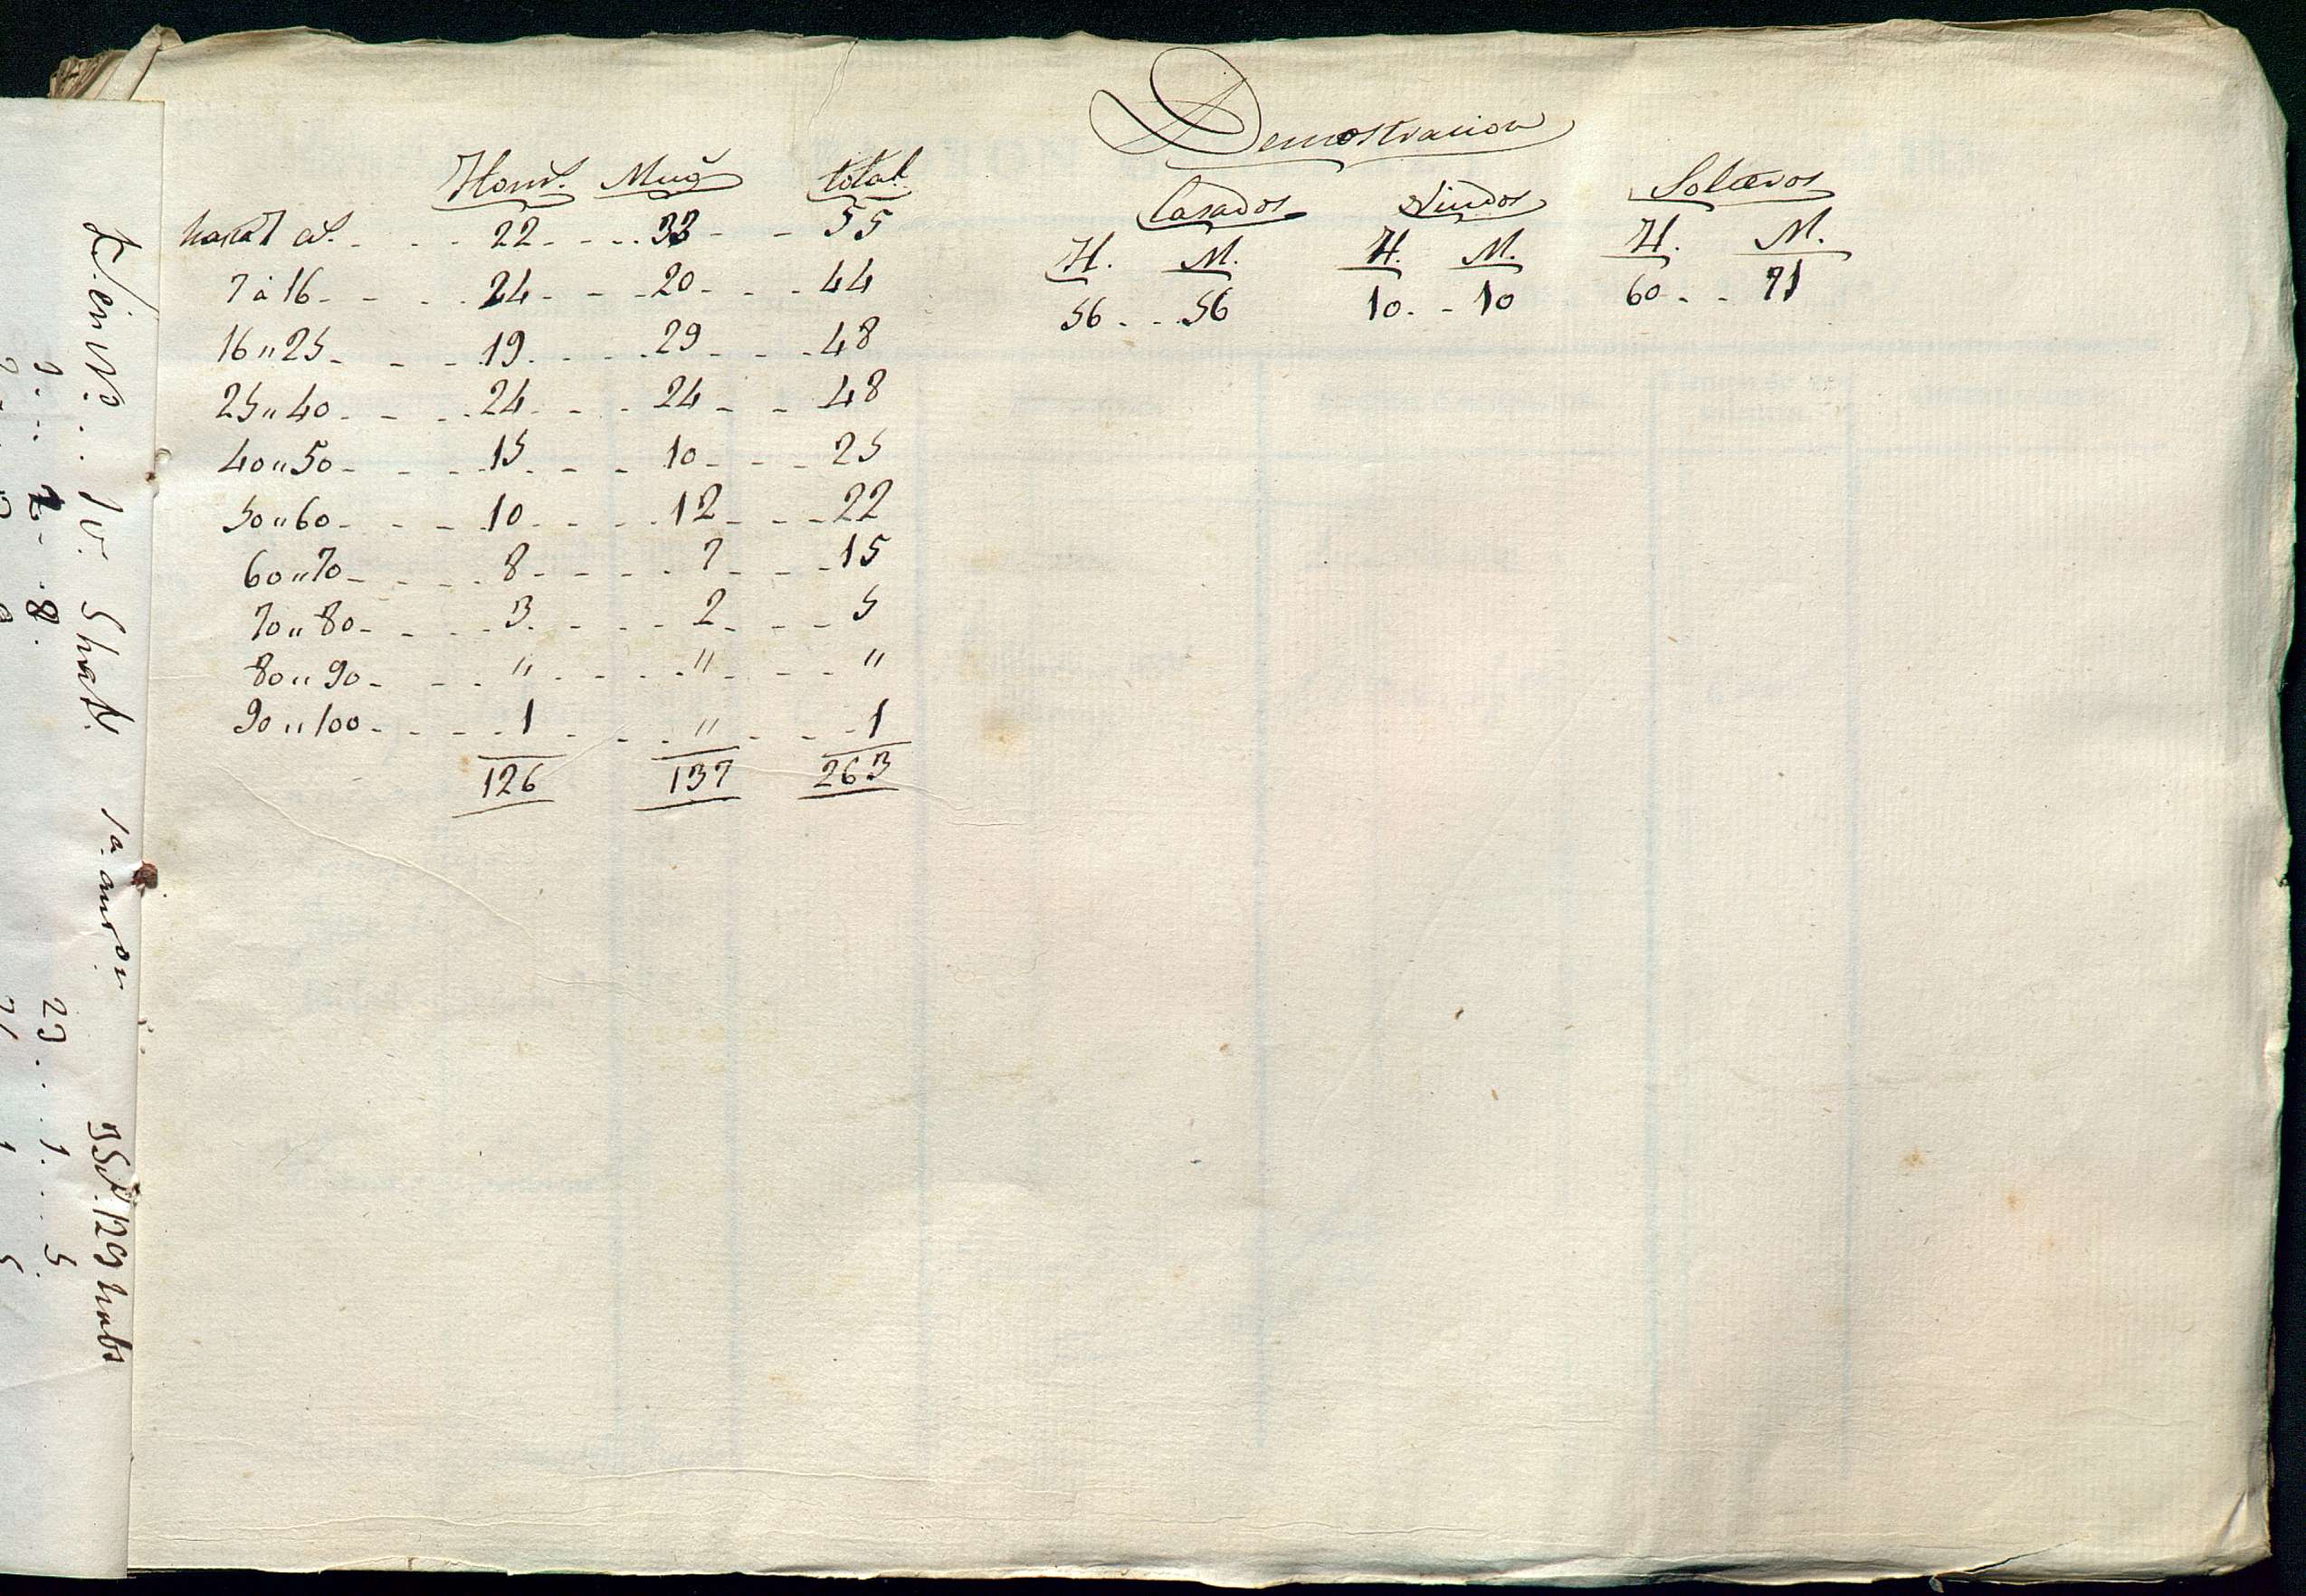 Demostracion
Homs. Mug.s total.
hasta 7 as. 22 33 55
7 á 16 24 20 44
16 " 25 19 29 48
25 " 40 24 24 48
40 " 50 15 10 25
50 " 60 10 12 22
60 " 70 8 7 15
70 " 80 3 2 5
80 " 90 " " "
90 " 100 1 " 1
126 137 263
Casados Viudos Solteros
H. M. H. M. H. M.
56 56 10 10 60 71
129 habs
29 1 5
2 8